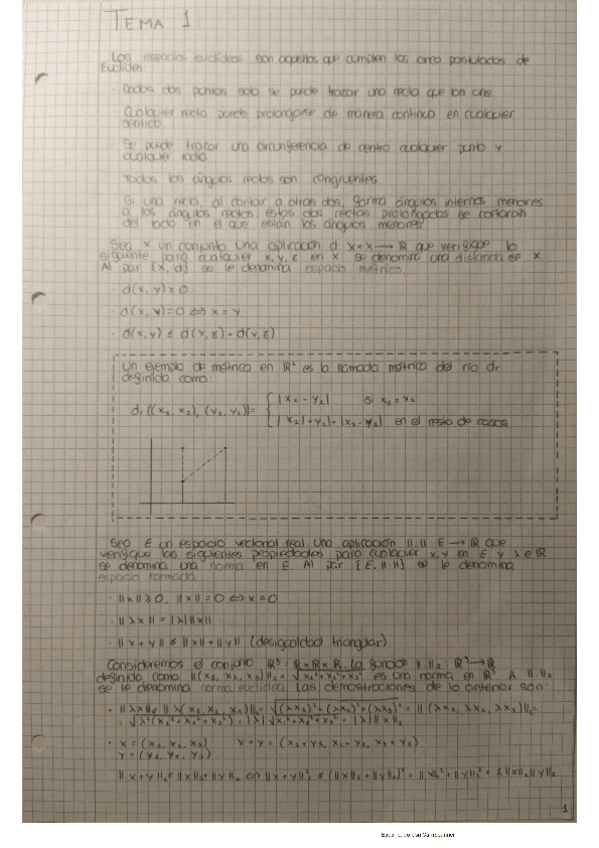 TEMA 1
Los espacios euclídeos son aquellos que cumplen los cinco postulados de
Euclides:
· Dados dos puntos solo se puede trazar una recta que los une.
· Cualquier recta puede prolongarse de manera continua en cualquier
sentido.
· Se puede trazar una circunferencia de centro cualquier punto y
cualquier radio.
· Todos los ángulos rectos son congruentes.
· Si una recta, al cortar a otras dos, forma ángulos internos menores
a los ángulos rectos, estas dos rectas prolongadas se cortarán
del lado en el que están los ángulos menores.
Sea X un conjunto. Una aplicación d: X×X → ℝ que verifique lo
siguiente para cualquier x, y, z en X se denomina una distancia en X.
Al par {X, d} se le denomina espacio métrico.
· d(x, y) ≥ 0
· d(x, y) = 0 ⇔ x = y
· d(x, y) ≤ d(x, z) + d(y, z)
Un ejemplo de métrica en ℝ² es la llamada métrica del río dr
definida como:
en el resto de casos
Sea E un espacio vectorial real. Una aplicación ||·||: E → ℝ que
verifique las siguientes propiedades para cualquier x, y en E y λ ∈ ℝ
se denomina una norma en E. Al par {E, ||·||} se le denomina
espacio normado.
· ||x|| ≥ 0, ||x|| = 0 ⇔ x = 0
· ||λx|| = |λ| ||x||
· ||x + y|| ≤ ||x|| + ||y|| (desigualdad triangular)
Consideremos el conjunto ℝ³ = ℝ×ℝ×ℝ. La función ||·||₂: ℝ³ → ℝ
definida como ||(x₁, x₂, x₃)||₂ = √x₁²+x₂²+x₃² es una norma en ℝ³. A ||·||₂
se le denomina norma euclídea. Las demostraciones de lo anterior son:
· ||λx||₂ = ||λ(x₁, x₂, x₃)||₂ = √(λx₁)²+(λx₂)²+(λx₃)² = ||(λx₁, λx₂, λx₃)||₂ =
= √λ²(x₁²+x₂²+x₃²) = |λ|√x₁²+x₂²+x₃² = |λ| ||x||₂
· x = (x₁, x₂, x₃) x + y = (x₁+y₁, x₂+y₂, x₃+y₃)
y = (y₁, y₂, y₃)
||x + y||₂ ≤ ||x||₂ + ||y||₂ ⇔ ||x + y||₂² ≤ (||x||₂ + ||y||₂)² = ||x||₂² + ||y||₂² + 2||x||₂||y||₂
1